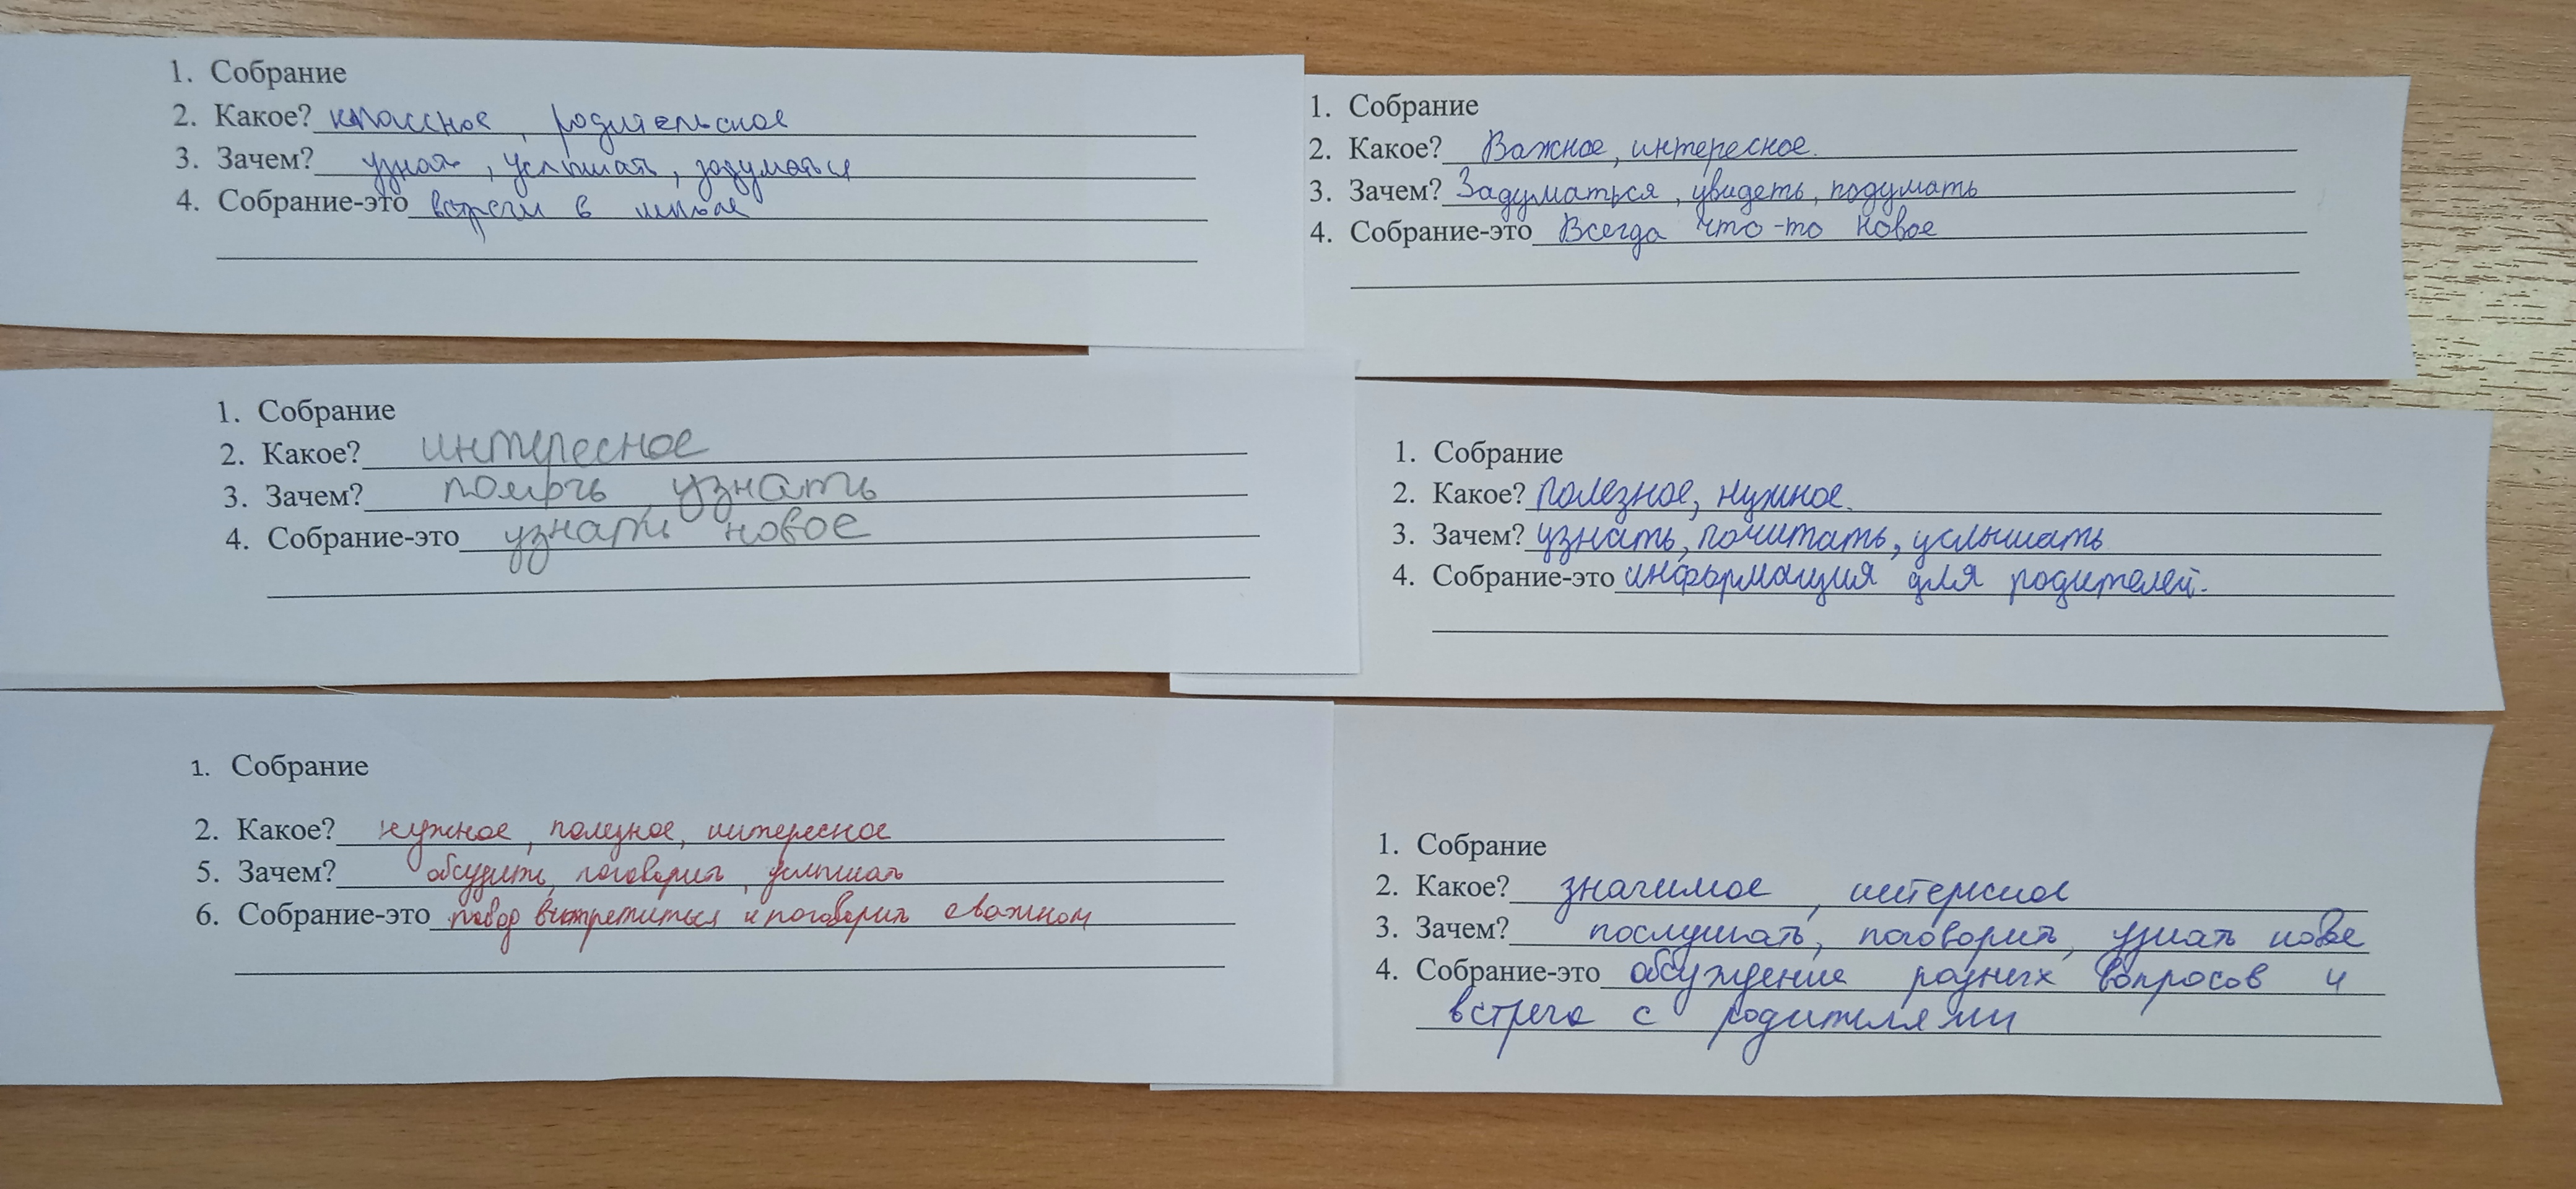 1. Собрание
2. Какое? классное, родительское
3. Зачем? узнать, услышать, задуматься
4. Собрание-это встречи в школе
1. Собрание
2. Какое? Важное, интересное.
3. Зачем? Задуматься, увидеть, подумать
4. Собрание-это Всегда что-то новое
1. Собрание
2. Какое? интересное
3. Зачем? узнать
4. Собрание-это узнать новое
1. Собрание
2. Какое? полезное, нужное.
3. Зачем? узнать, почитать, услышать
4. Собрание-это информация для родителей.
1. Собрание
2. Какое? нужное, полезное, интересное
5. Зачем? обсудить, поговорить, услышать
6. Собрание-это встретиться и поговорить о важном
1. Собрание
2. Какое? значимое, интересное
3. Зачем? послушать, поговорить, узнать новое
4. Собрание-это обсуждение разных вопросов и
встреча с родителями